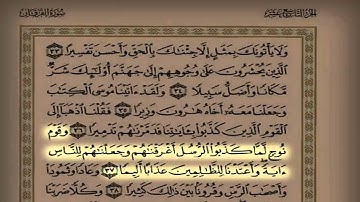 الجزء التاسع عشر سورة الفرقان
وَلَا يَأْتُونَكَ بِمَثَلٍ إِلَّا جِئْنَٰكَ بِٱلْحَقِّ وَأَحْسَنَ تَفْسِيرًا ٣٣
ٱلَّذِينَ يُحْشَرُونَ عَلَىٰ وُجُوهِهِمْ إِلَىٰ جَهَنَّمَ أُو۟لَٰٓئِكَ شَرٌّ
مَّكَانًا وَأَضَلُّ سَبِيلًا ٣٤ وَلَقَدْ ءَاتَيْنَا مُوسَى ٱلْكِتَٰبَ
وَجَعَلْنَا مَعَهُۥٓ أَخَاهُ هَٰرُونَ وَزِيرًا ٣٥ فَقُلْنَا ٱذْهَبَآ إِلَى
ٱلْقَوْمِ ٱلَّذِينَ كَذَّبُوا۟ بِـَٔايَٰتِنَا فَدَمَّرْنَٰهُمْ تَدْمِيرًا ٣٦ وَقَوْمَ
نُوحٍ لَّمَّا كَذَّبُوا۟ ٱلرُّسُلَ أَغْرَقْنَٰهُمْ وَجَعَلْنَٰهُمْ لِلنَّاسِ
ءَايَةً وَأَعْتَدْنَا لِلظَّٰلِمِينَ عَذَابًا أَلِيمًا ٣٧ وَعَادًا وَثَمُودَا۟
وَأَصْحَٰبَ ٱلرَّسِّ وَقُرُونًۢا بَيْنَ ذَٰلِكَ كَثِيرًا ٣٨ وَكُلًّا ضَرَبْنَا